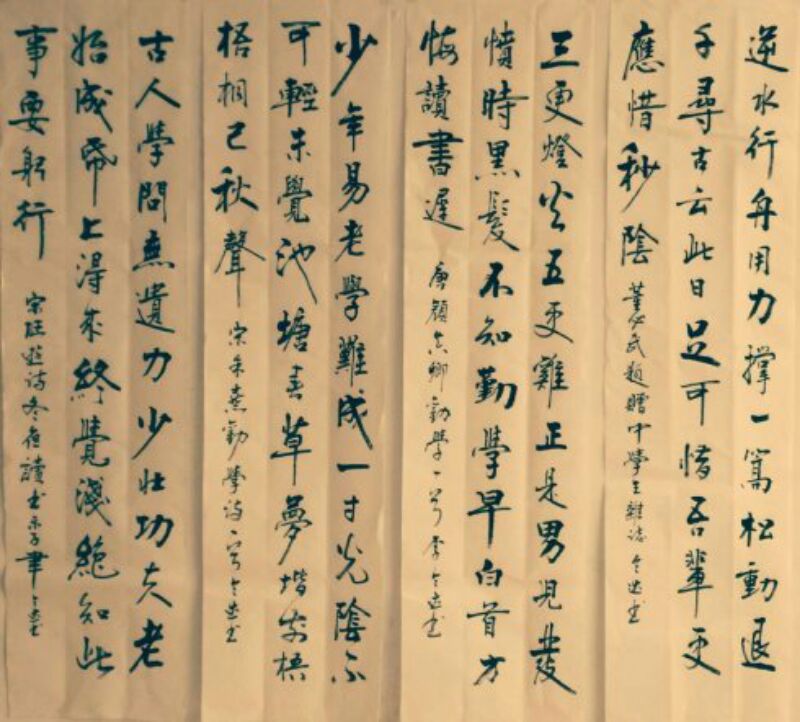 逆水行舟用力撑一篙松動退
千尋古云此日足可惜吾輩更
應惜秒陰
董必武題贈中學生雜誌
三更燈火五更雞正是男兒發
憤時黑髮不知勤學早白首方
悔讀書遲
唐顏真卿勸學一首
少年易老學難成一寸光陰不
可輕未覺池塘春草夢堦前梧
桐已秋聲
宋朱熹勸學詩一首
古人學問無遺力少壯功夫老
始成帋上淂来終覺淺絶知此
事要躬行
宋陸遊詩冬夜讀书示子聿